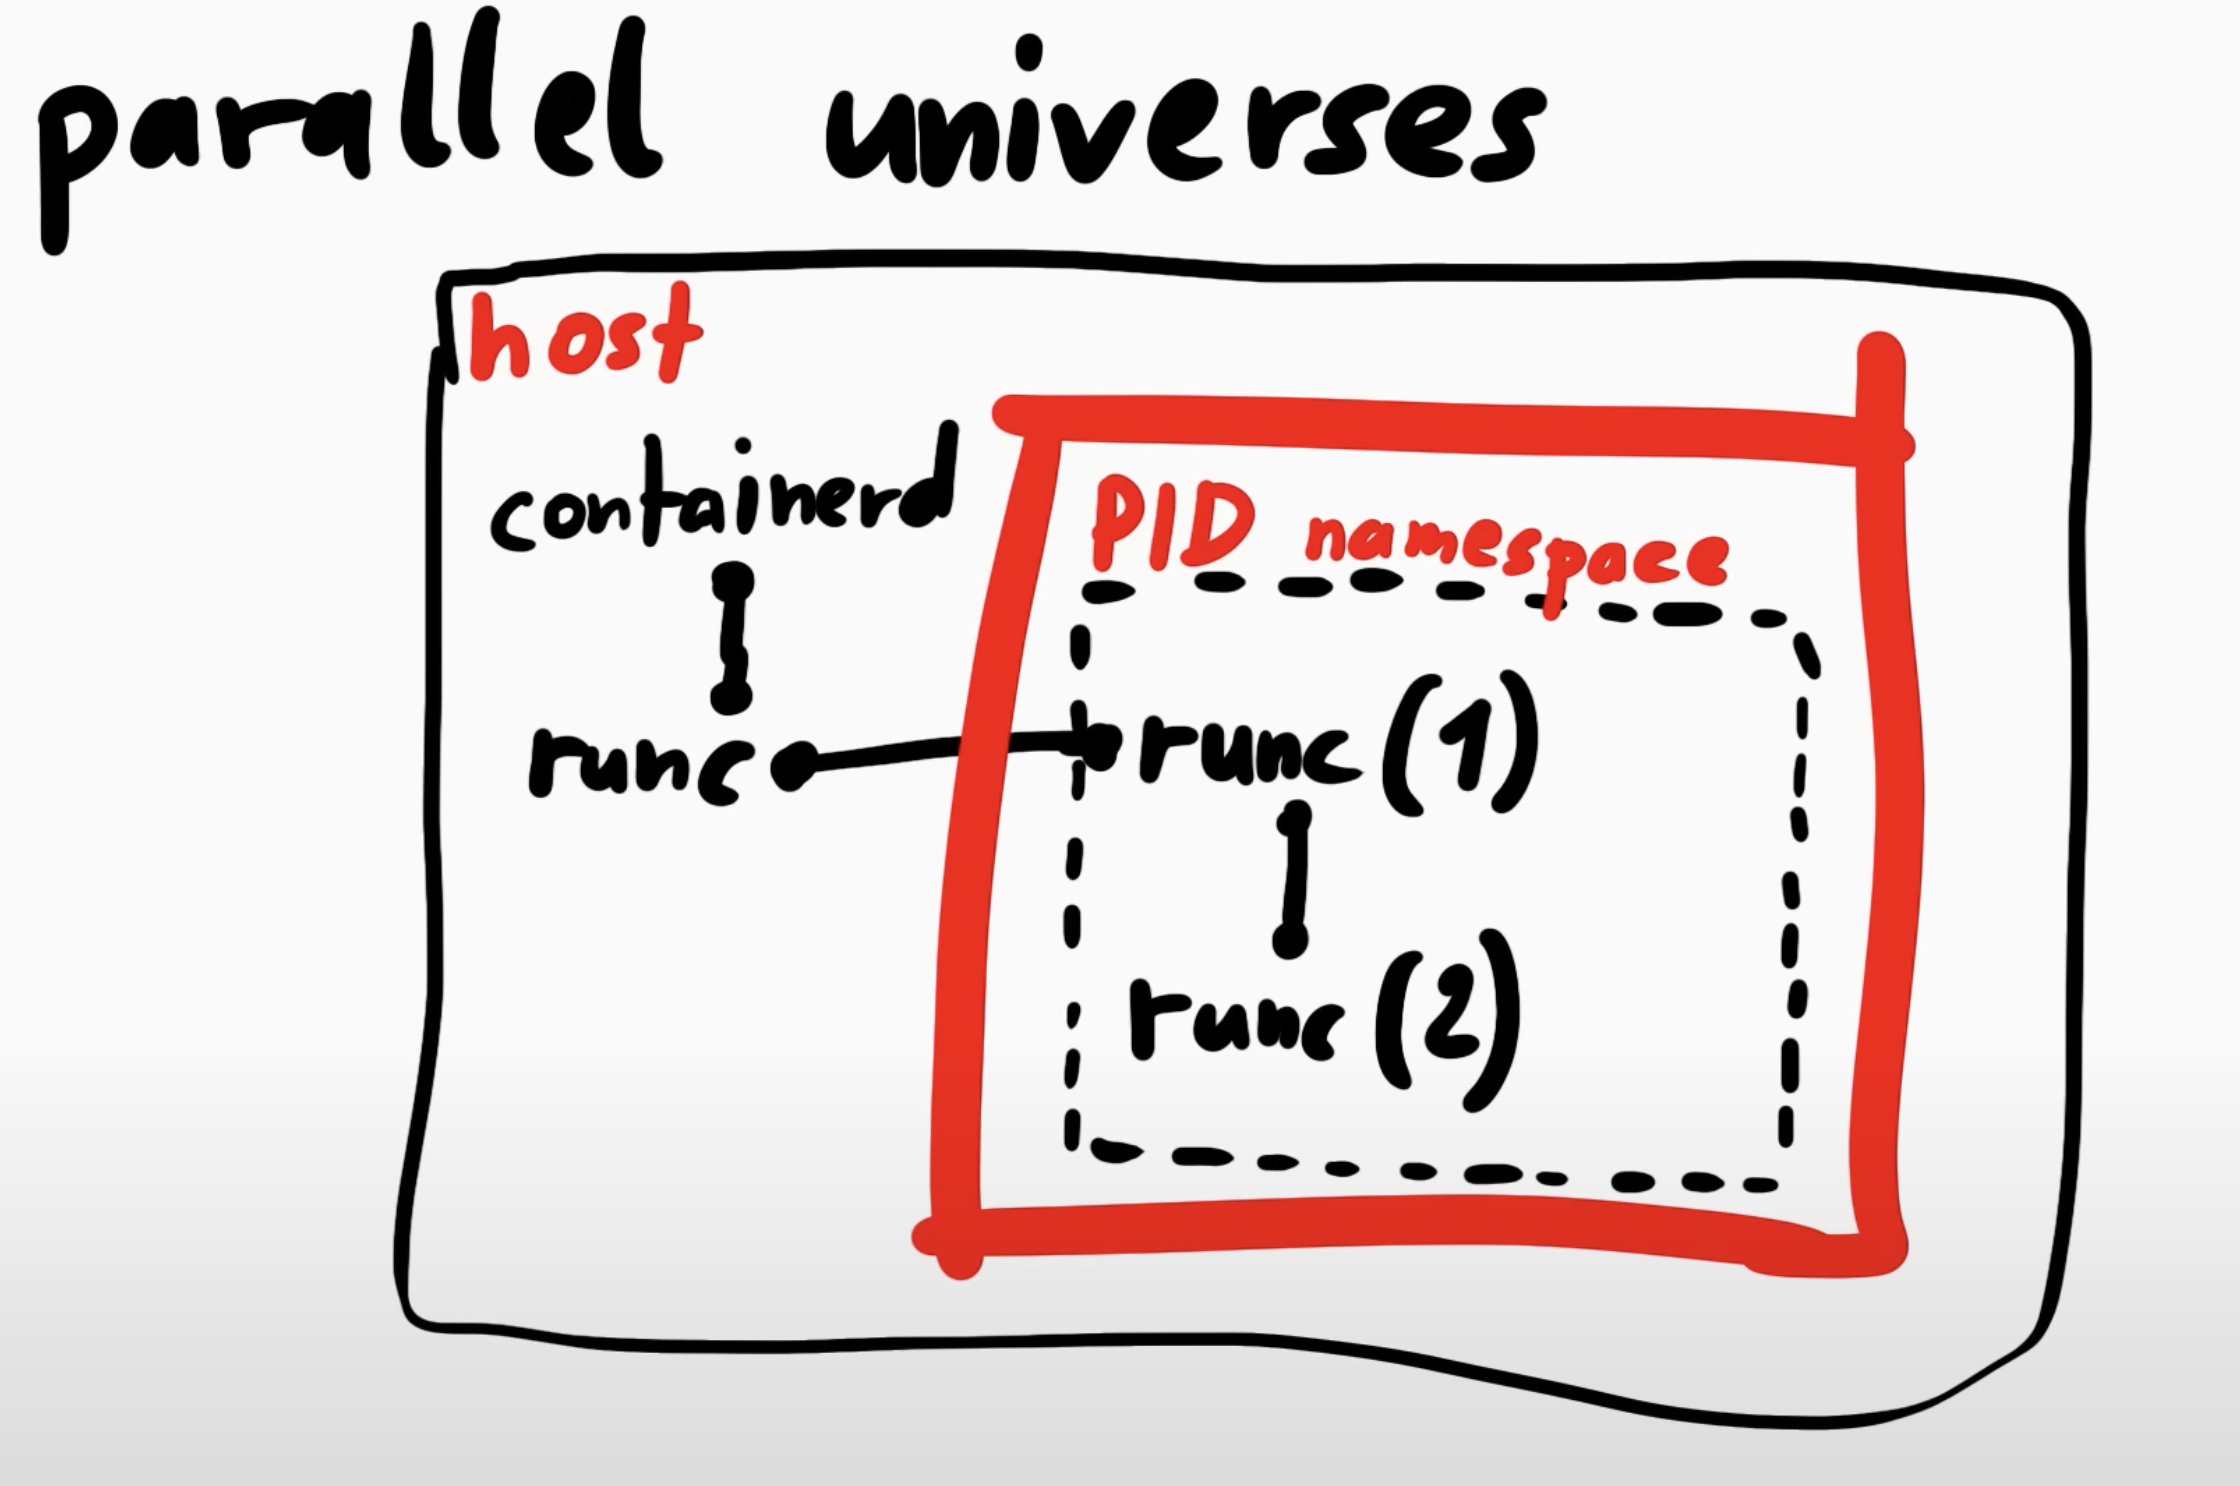 parallel universes
host
containerd
PID namespace
runc
runc (1)
runc (2)